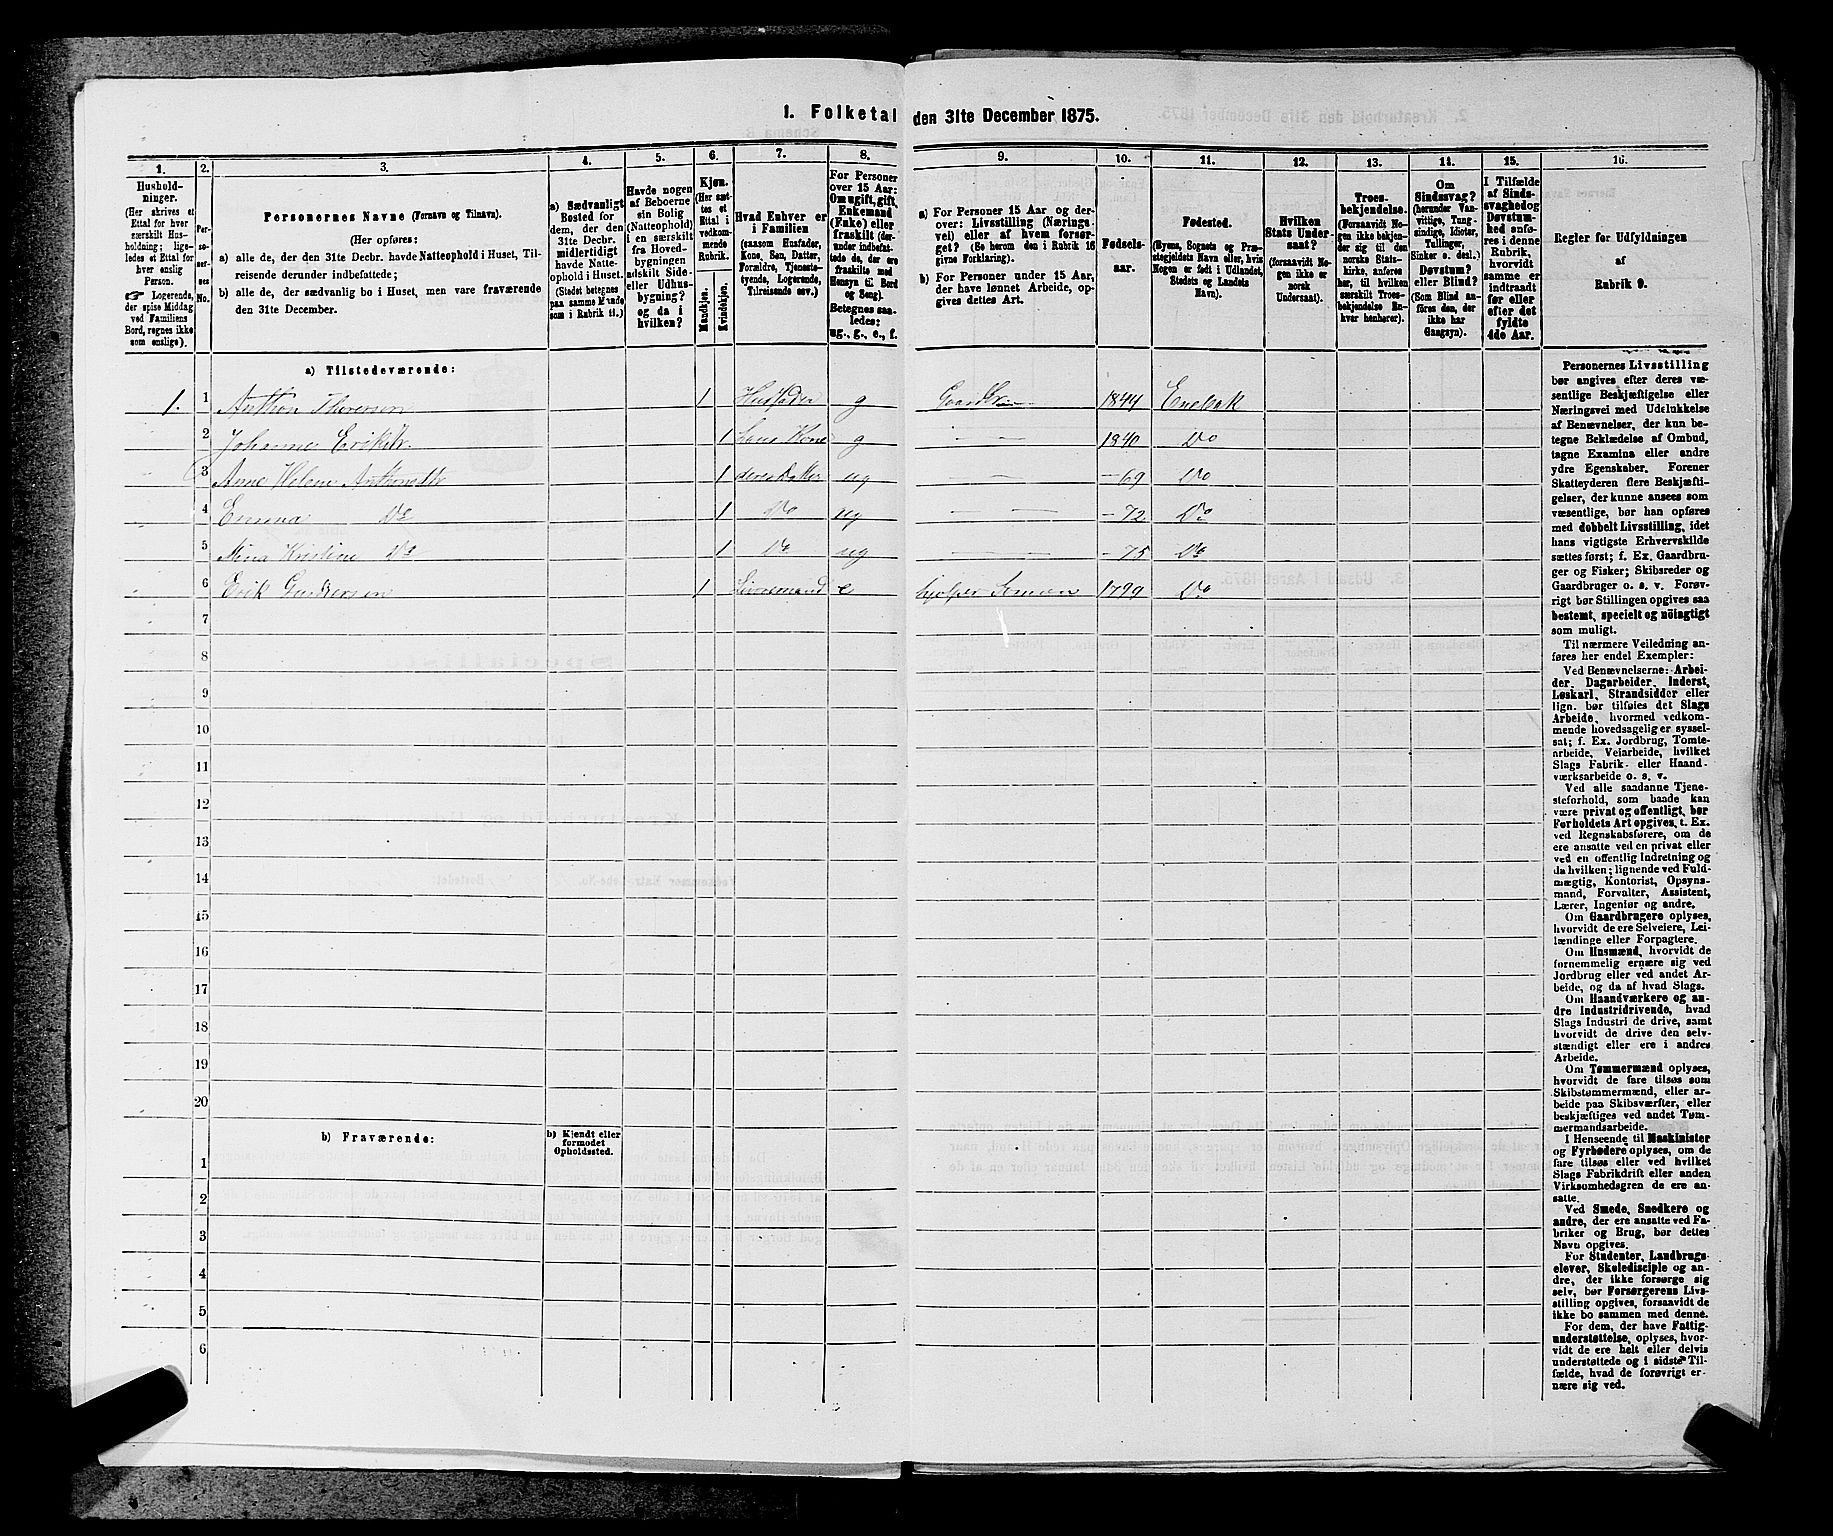 1. Folketal den 31te December 1875.
1.
Hushold-
ninger.
(Her skrives et
Ettal for hver
særskilt Hus-
holdning; lige-
ledes et Ettal for
hver enslig
Person.
☞ Logerende,
der spise Middag
ved Familiens
Bord, regnes ikke
som enslige).
2.
Per-
so-
ner-
nes
No.
3.
Personernes Navne (Fornavn og Tilnavn).
(Her opføres:
a) alle de, der den 31te Decbr. havde Natteophold i Huset, Til-
reisende derunder indbefattede;
b) alle de, der sædvanlig bo i Huset, men vare fraværende
den 31te December.
4.
a) Sædvanligt
Bosted for
dem, der den
31te Decbr.
midlertidigt
havde Natte-
ophold i Huset.
(Stedet betegnes
paa samme Maade
som i Rubrik 11.)
5.
Havde nogen
af Beboerne
sin Bolig
(Natteophold)
i en særskilt
fra Hoved-
bygningen
adskilt Side-
eller Udhus-
bygning?
og da i
hvilken?
6.
Kjøn.
(Her sæt-
tes et
Ettal i
vedkom-
mende
Rubrik.
Mandkjøn.
Kvindekjøn.
7.
Hvad Enhver er
i Familien
(saasom Husfader,
Kone, Søn, Datter,
Forældre, Tjeneste-
tyende, Logerende,
Tilreisende osv.)
8.
For Personer
over 15 Aar:
Om ugift, gift,
Enkemand
(Enke) eller
fraskilt (der-
under indbefat-
tede de, der ere
fraskilte med
Hensyn til Bord
og Seng).
Betegnes saa-
ledes:
ug., g., e., f.
9.
a) For Personer 15 Aar og der-
over: Livsstilling (Nærings-
vei) eller af hvem forsør-
get? (Se herom den i Rubrik 16
givne Forklaring).
b) For Personer under 15 Aar,
der have lønnet Arbeide, op-
gives dettes Art.
10.
Fødsels-
aar.
11.
Fødested.
(Byens, Sognets og Præ-
stegjeldets Navn eller, hvis
Nogen er født i Udlandet,
Stedets og Landets
Navn).
12.
Hvilken
Stats Under-
saat?
(forsaavidt No-
gen ikke er
norsk
Undersaat).
13.
Troes-
bekjendelse.
(Forsaavidt No-
gen ikke bekjen-
der sig til den
norske Stats-
kirke, anføres
her, til hvilken
særskilt Troes-
bekjendelse En-
hver henhører).
14.
Om
Sindssvag?
(herunder Van-
vittige, Tung-
sindige, Idioter,
Tullinger,
Sinker o. desl.)
Døvstum?
eller Blind?
(Som Blind an-
føres den, der
ikke har
Gangsyn).
15.
I Tilfælde
af Sinds-
svaghed og
Døvstum-
hed anfø-
res i denne
Rubrik,
hvorvidt
samme er
indtraadt
før eller
efter det
fyldte
4de Aar.
16.
Regler for Udfyldningen
af
Rubrik 9.
a) Tilstedeværende:
1. 1 Anthon Thoresen 1 Husfader g Gaardbr. 1844 Enebak
2 Johanne Eriksdr. 1 hans Kone g — — 1840 Do
3 Anne Helene Anthonsdtr 1 deres Datter ug — — —69 Do
4 Emma Do 1 Do ug — — —72 Do
5 Mina Kristine Do 1 Do ug — — —75 Do
6 Erik Gundersen 1 e hjelper Sønnen 1799 Do
7
8
9
10
11
12
13
14
15
16
17
18
19
20
b) Fraværende:
b) Kjendt eller
formodet
Opholdssted.
1
2
3
4
5
6
Personernes Livsstilling
bør angives efter deres væ-
sentlige Beskjæftigelse eller
Næringsvei med Udelukkelse
af Benævnelser, der kun be-
tegne Beklædelse af Ombud,
tagne Examina eller andre
ydre Egenskaber. Forener
Skatteyderen flere Beskjæfti-
gelser, der kunne ansees som
væsentlige, bør han opføres
med dobbelt Livsstilling, idet
hans vigtigste Erhvervskilde
sættes først; f. Ex. Gaardbru-
ger og Fisker; Skibsreder og
Gaardbruger o. s. v. Forøv-
rigt bør Stillingen opgives saa
bestemt, specielt og nöiagtigt
som muligt.
Til nærmere Veiledning an-
føres her endel Exempler:
Ved Benævnelserne: Arbei-
der, Dagarbeider, Inderst,
Løskarl, Strandsidder eller
lign. bør tilføies det Slags
Arbeide, hvormed vedkom-
mende hovedsagelig er syssel-
sat; f. Ex. Jordbrug, Tomte-
arbeide, Veiarbeide, hvilket
Slags Fabrik- eller Haand-
værksarbeide o. s. v.
Ved alle saadanne Tjene-
steforhold, som baade kan
være privat og offentligt, bør
Forholdets Art opgives, t. Ex.
ved Regnskabsførere, om de
ere ansatte ved en privat eller
ved en offentlig Indretning og
da hvilken; lignende ved Fuld-
mægtig, Kontorist, Opsyns-
mand, Forvalter, Assistent,
Lærer, Ingeniør og andre.
Om Gaardbrugere oplyses,
hvorvidt de ere Selveiere, Lei-
lændinge eller Forpagtere.
Om Husmænd, hvorvidt de
fornemmelig ernære sig ved
Jordbrug eller ved andet Ar-
beide, og da af hvad Slags.
Om Haandværkere og an-
dre industridrivende, hvad
Slags Industri de drive, samt
hvorvidt de drive den selv-
stændigt eller ere i andres
Arbeide.
Om Tømmermænd oplyses,
hvorvidt de fare tilsøs som
Skibstømmermænd, eller ar-
beide paa Skibsværfter, eller
beskjæftiges ved andet Tøm-
mermandsarbeide.
I Henseende til Maskinister
og Fyrbødere oplyses, om de
fare tilsøs eller ved hvilket
Slags Fabrikdrift eller anden
Virksomhedsgren de ere an-
satte.
Ved Smede, Snedkere og
andre, der ere ansatte ved Fa-
briker og Brug, bør dettes
Navn opgives.
For Studenter, Landbrugs-
elever, Skoledisciple og an-
dre, der ikke forsørge sig
selv, bør Forsørgerens Livs-
stilling opgives, forsaavidt de
ikke bo sammen med denne.
For dem, der have Fattig-
understøttelse, oplyses, hvor-
vidt de ere helt eller delvis
understøttede og i sidste Til-
fælde, hvad de forøvrigt er-
nære sig ved.